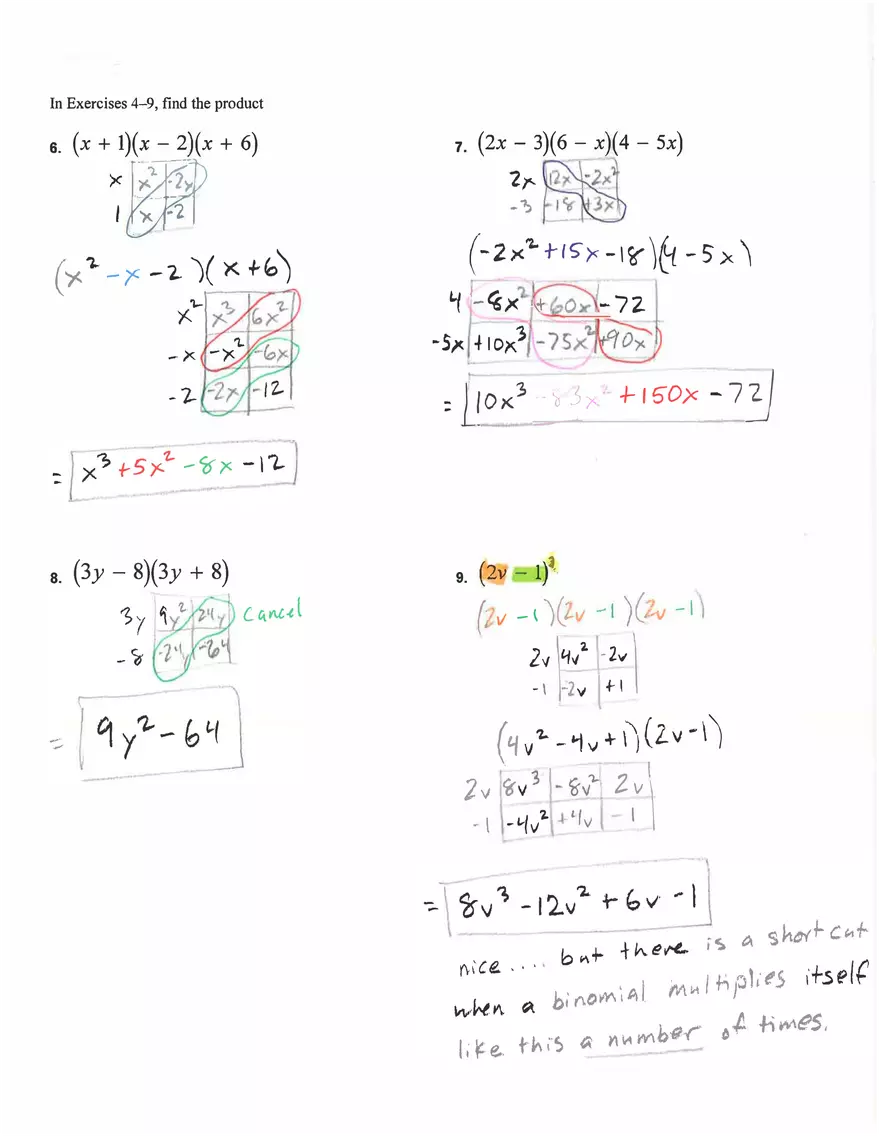 In Exercises 4–9, find the product
6. (x + 1)(x − 2)(x + 6)
x x² -2x
1 x -2
(x² -x -2)(x+6)
x² x³ 6x²
-x -x² -6x
-2 -2x -12
= x³ +5x² -8x -12
7. (2x − 3)(6 − x)(4 − 5x)
2x 12x -2x²
-3 -18 +3x
(-2x² +15x -18)(4 -5x)
4 -8x² +60x -72
-5x +10x³ -75x² +90x
= 10x³ -83x² +150x -72
8. (3y − 8)(3y + 8)
3y 9y² 24y cancel
-8 -24y -64
= 9y² -64
9. (2v − 1)³
(2v -1)(2v -1)(2v -1)
2v 4v² -2v
-1 -2v +1
(4v² -4v+1)(2v-1)
2v 8v³ -8v² 2v
-1 -4v² +4v -1
= 8v³ -12v² +6v -1
nice.... but there is a short cut
when a binomial multiplies itself
like this a number of times.